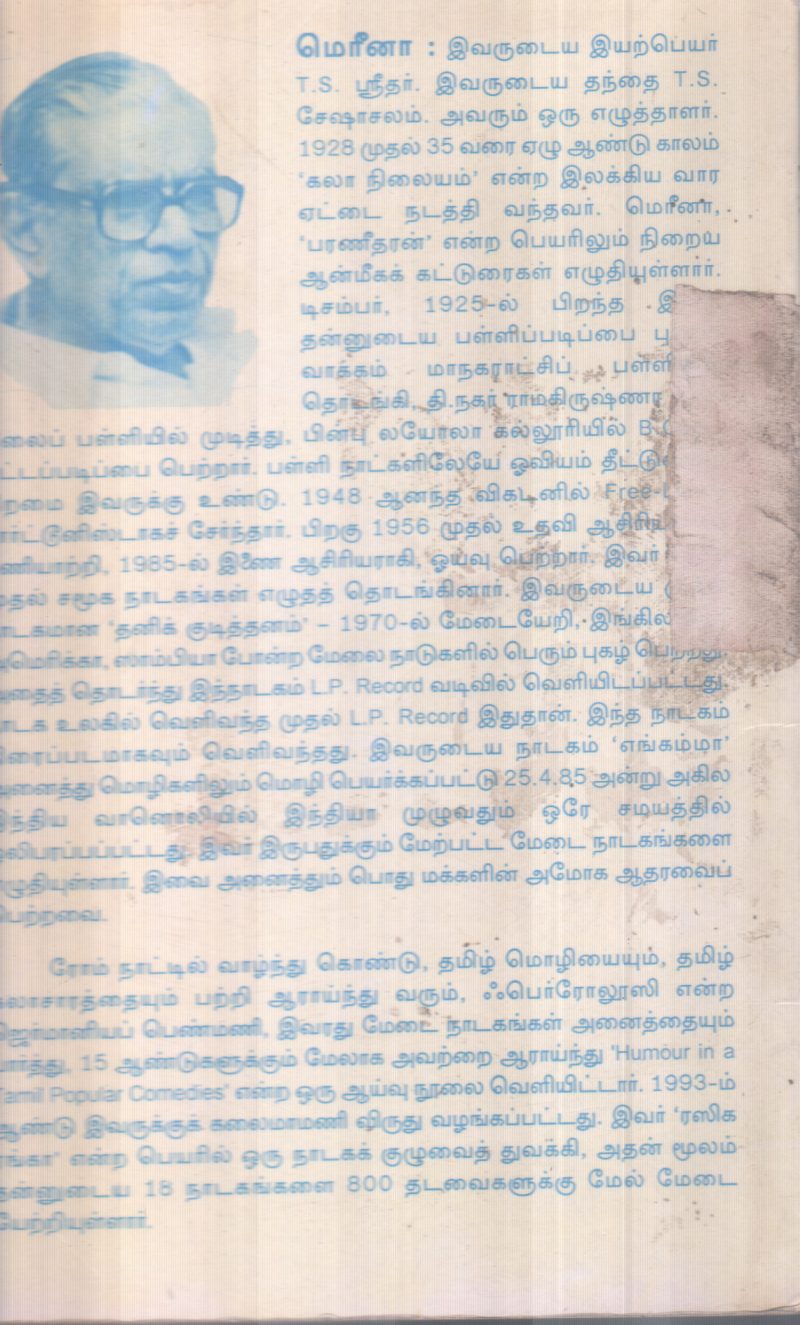 மெரீனா : இவருடைய இயற்பெயர்
T.S. ஸ்ரீதர். இவருடைய தந்தை T.S.
சேஷாசலம். அவரும் ஒரு எழுத்தாளர்.
1928 முதல் 35 வரை ஏழு ஆண்டு காலம்
‘கலா நிலையம்’ என்ற இலக்கிய வார
ஏட்டை நடத்தி வந்தவர். மெரீனா,
‘பரணீதரன்’ என்ற பெயரிலும் நிறைய
ஆன்மீகக் கட்டுரைகள் எழுதியுள்ளார்.
டிசம்பர், 1925-ல் பிறந்த
தன்னுடைய பள்ளிப்படிப்பை
வாக்கம் மாநகராட்சிப்
தொடங்கி, தி.நகர்
பள்ளியில் முடித்து, பின்பு லயோலா கல்லூரியில்
பெற்றார். பள்ளி நாட்களிலேயே ஓவியம்
இவருக்கு உண்டு. 1948 ஆனந்த விகடனில்
சேர்ந்தார். பிறகு 1956 முதல் உதவி
1985-ல் இணை ஆசிரியராகி, ஓய்வு பெற்றார். இவர்
சமூக நாடகங்கள் எழுதத் தொடங்கினார். இவருடைய
‘தனிக் குடித்தனம்’ – 1970-ல் மேடையேறி,
ஸாம்பியா போன்ற மேலை நாடுகளில் பெரும் புகழ் பெற்றது.
தொடர்ந்து இந்நாடகம் L.P. Record வடிவில் வெளியிடப்பட்டது.
உலகில் வெளிவந்த முதல் L.P. Record இதுதான். இந்த நாடகம்
வெளிவந்தது. இவருடைய நாடகம் ‘எங்கம்மா’
மொழிகளிலும் மொழி பெயர்க்கப்பட்டு 25.4.85 அன்று அகில
வானொலியில் இந்தியா முழுவதும் ஒரே சமயத்தில்
இவர் இருபதுக்கும் மேற்பட்ட மேடை நாடகங்களை
இவை அனைத்தும் பொது மக்களின் அமோக ஆதரவைப்
ரோம் நாட்டில் வாழ்ந்து கொண்டு, தமிழ் மொழியையும், தமிழ்
பற்றி ஆராய்ந்து வரும், ஃபெர்ரோலூஸி என்ற
பெண்மணி, இவரது மேடை நாடகங்கள் அனைத்தையும்
15 ஆண்டுகளுக்கும் மேலாக அவற்றை ஆராய்ந்து 'Humour in a
Popular Comedies' என்ற ஒரு ஆய்வு நூலை வெளியிட்டார். 1993-ம்
இவருக்குக் கலைமாமணி விருது வழங்கப்பட்டது. இவர் ‘ரஸிக
என்ற பெயரில் ஒரு நாடகக் குழுவைத் துவக்கி, அதன் மூலம்
18 நாடகங்களை 800 தடவைகளுக்கு மேல் மேடை